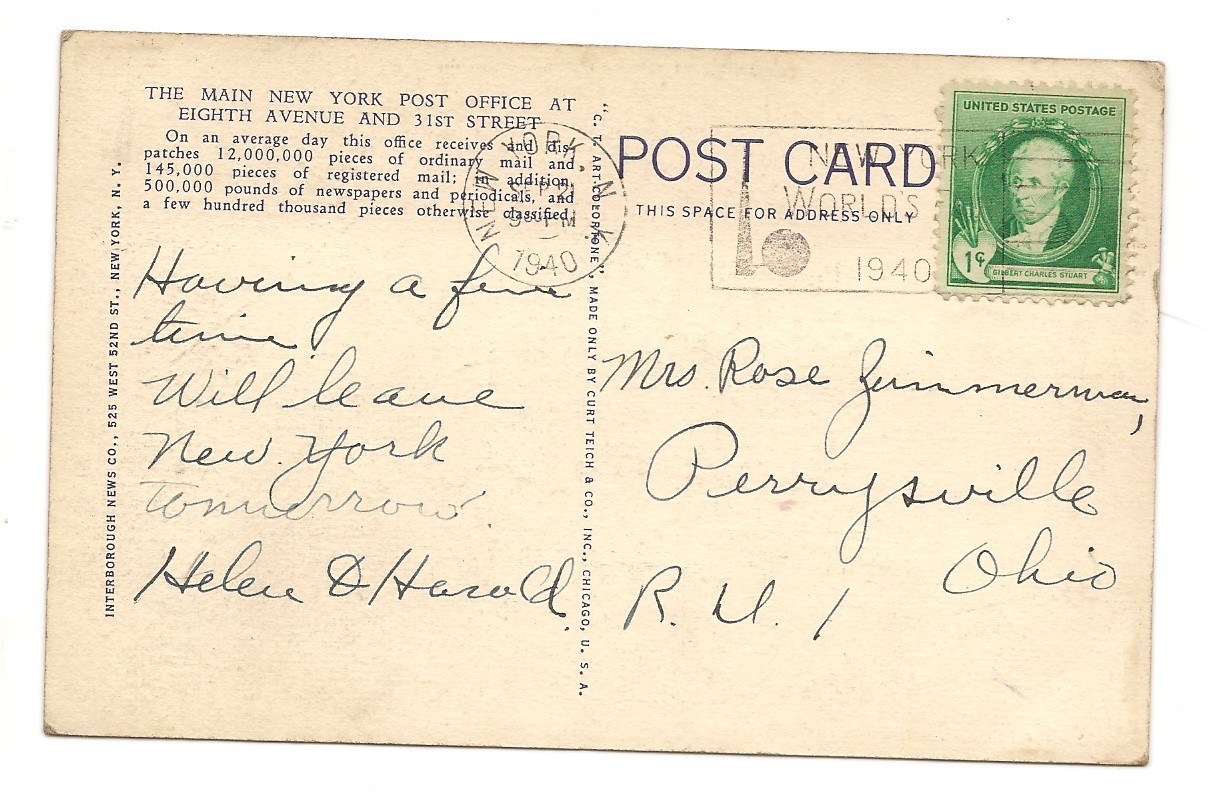 THE MAIN NEW YORK POST OFFICE AT
EIGHTH AVENUE AND 31ST STREET
On an average day this office receives and dis-
patches 12,000,000 pieces of ordinary mail and
145,000 pieces of registered mail; in addition,
500,000 pounds of newspapers and periodicals, and
a few hundred thousand pieces otherwise classified.
Having a fine
time.
Will leave
New York
Tomorrow.
Helen & Harold.
INTERBOROUGH NEWS CO., 525 WEST 52ND ST., NEW YORK, N. Y.
"C. T. ART-COLORTONE", MADE ONLY BY CURT TEICH & CO., INC., CHICAGO, U. S. A.
NEW YORK, N.Y.
SEP 21
9-PM
1940
POST CARD
THIS SPACE FOR ADDRESS ONLY
NEW YORK
WORLD'S
1940
UNITED STATES POSTAGE
1¢
GILBERT CHARLES STUART
Mrs. Rose Zimmerman,
Perrysville
Ohio
R. 1